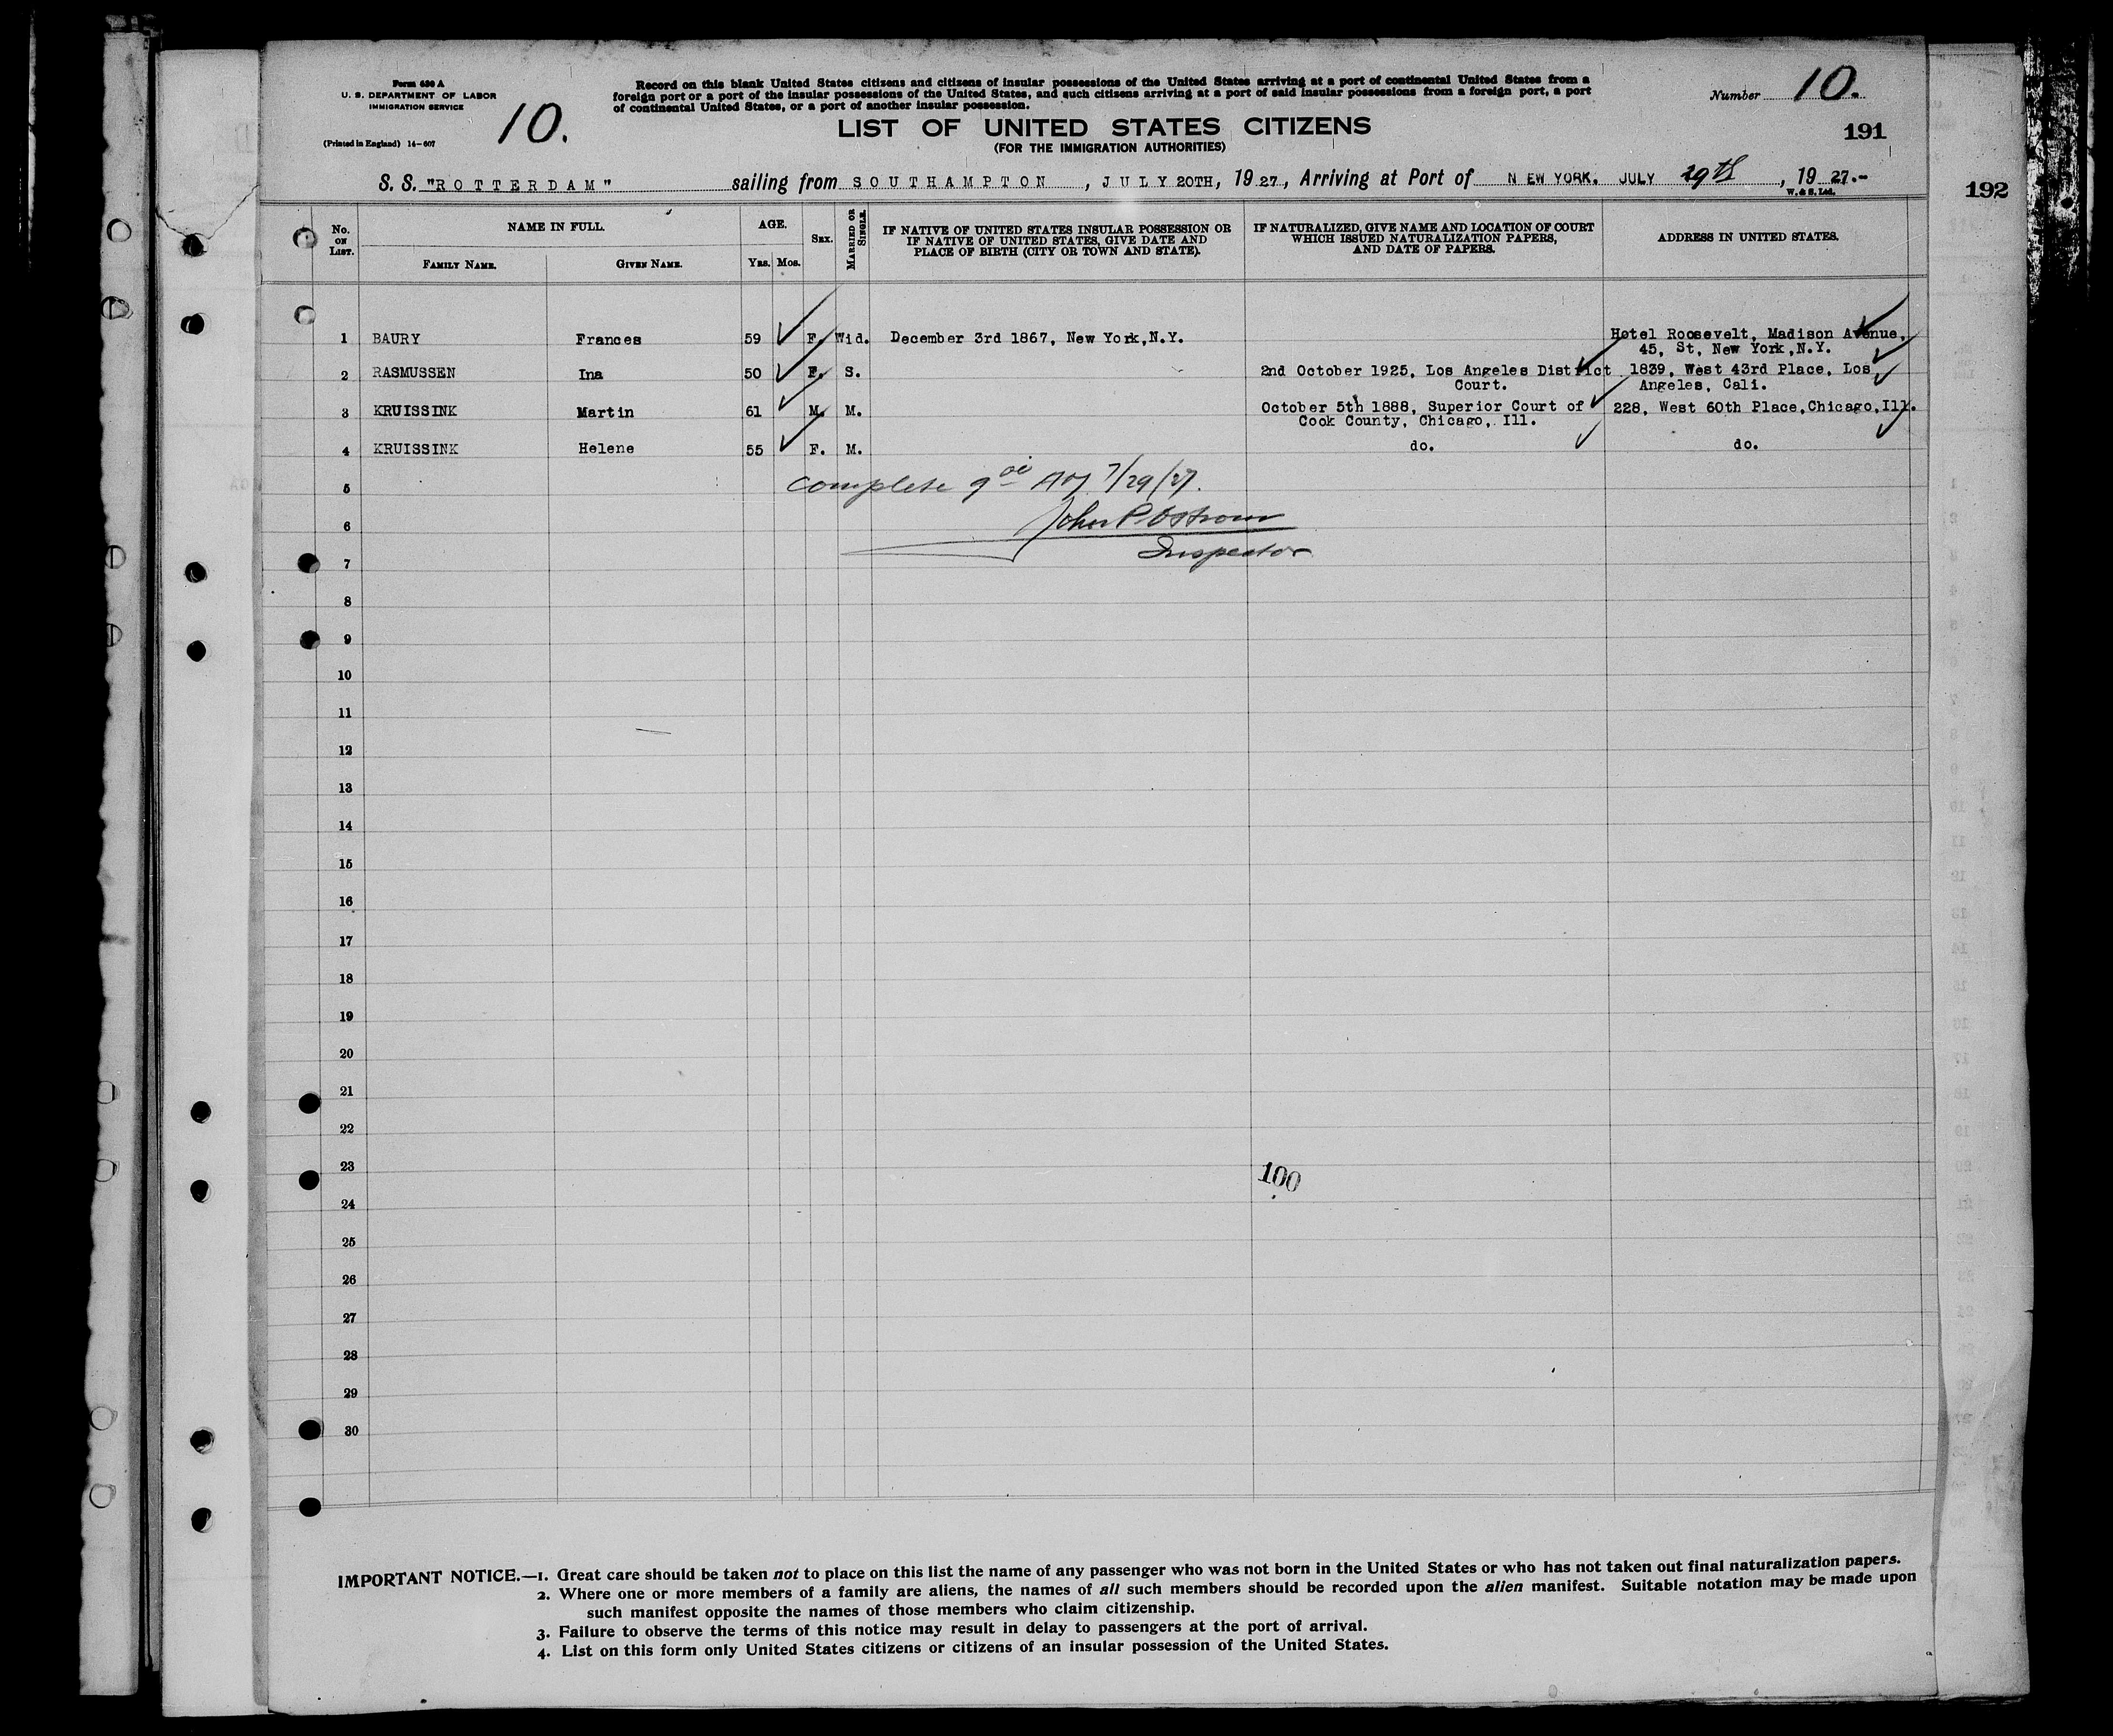 Form 630 A
U. S. DEPARTMENT OF LABOR
IMMIGRATION SERVICE
(Printed in England) 14-607
10.
Record on this blank United States citizens and citizens of insular possessions of the United States arriving at a port of continental United States from a
foreign port or a port of the insular possessions of the United States, and such citizens arriving at a port of said insular possessions from a foreign port, a port
of continental United States, or a port of another insular possession.
Number 10.
LIST OF UNITED STATES CITIZENS
(FOR THE IMMIGRATION AUTHORITIES)
191
192
S. S. "ROTTERDAM" sailing from SOUTHAMPTON, JULY 20TH, 1927, Arriving at Port of NEW YORK. JULY 29th, 1927.-
W. & S. Ltd.
No. ON LIST.
NAME IN FULL.
FAMILY NAME. GIVEN NAME.
AGE.
YRS. MOS.
SEX.
MARRIED OR SINGLE.
IF NATIVE OF UNITED STATES INSULAR POSSESSION OR
IF NATIVE OF UNITED STATES, GIVE DATE AND
PLACE OF BIRTH (CITY OR TOWN AND STATE).
IF NATURALIZED, GIVE NAME AND LOCATION OF COURT
WHICH ISSUED NATURALIZATION PAPERS,
AND DATE OF PAPERS.
ADDRESS IN UNITED STATES.
1 BAURY Frances 59 F. Wid. December 3rd 1867, New York,N.Y. Hotel Roosevelt, Madison Avenue,
45, St, New York,N.Y.
2 RASMUSSEN Ina 50 F. S. 2nd October 1925, Los Angeles District 1839, West 43rd Place, Los
Court. Angeles, Cali.
3 KRUISSINK Martin 61 M. M. October 5th 1888, Superior Court of 228, West 60th Place,Chicago,Ill.
Cook County, Chicago, Ill.
4 KRUISSINK Helene 55 F. M. do. do.
5 Complete 7/29/27.
6 John P Ostrom
7 Inspector
8
9
10
11
12
13
14
15
16
17
18
19
20
21
22
23 100
24
25
26
27
28
29
30
IMPORTANT NOTICE.—1. Great care should be taken not to place on this list the name of any passenger who was not born in the United States or who has not taken out final naturalization papers.
2. Where one or more members of a family are aliens, the names of all such members should be recorded upon the alien manifest. Suitable notation may be made upon
such manifest opposite the names of those members who claim citizenship.
3. Failure to observe the terms of this notice may result in delay to passengers at the port of arrival.
4. List on this form only United States citizens or citizens of an insular possession of the United States.